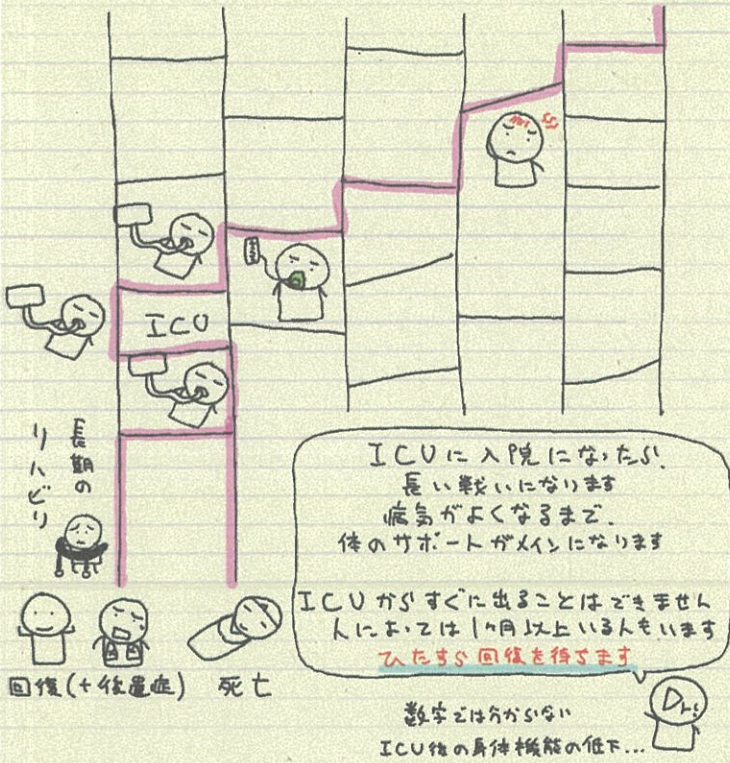 ICU
長期の
リハビリ
ICUに入院になったら、
長い戦いになります
病気がよくなるまで、
体のサポートがメインになります
ICUからすぐに出ることはできません
人によっては1ヶ月以上いる人もいます
ひたすら回復を待ちます
回復(+後遺症)
死亡
Dr.
数字では分からない
ICU後の身体機能の低下...